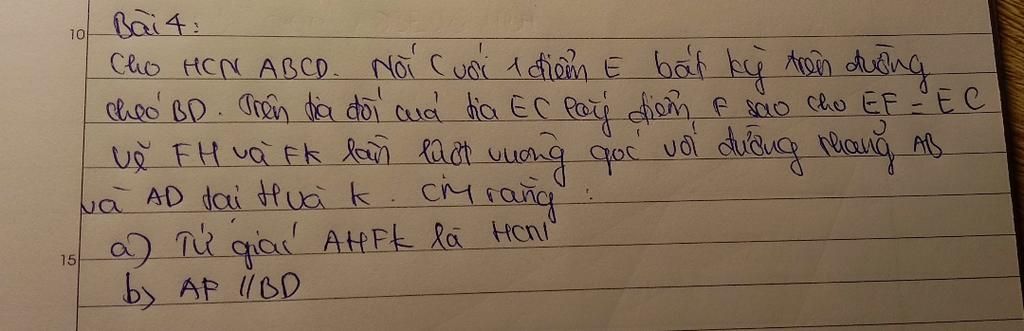 10 Bài 4:
Cho HCN ABCD. Nối C với 1 điểm E bất kỳ trên đường
chéo BD. Trên tia đối của tia EC lấy điểm F sao cho EF = EC
Vẽ FH và FK lần lượt vuông góc với đường thẳng AB
và AD tại H và K. CM rằng:
a) Tứ giác AHFK là HCN
15
b) AF // BD